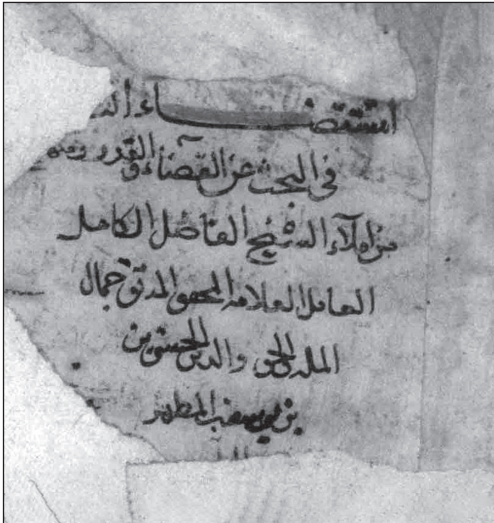 استقصاء
في البحث عن القضاء والقدر
من املاء الشيخ الفاضل الكامل
العامل العلامة المحقق المدقق جمال
الملة والحق والدين الحسن بن
بن يوسف بن المطهر